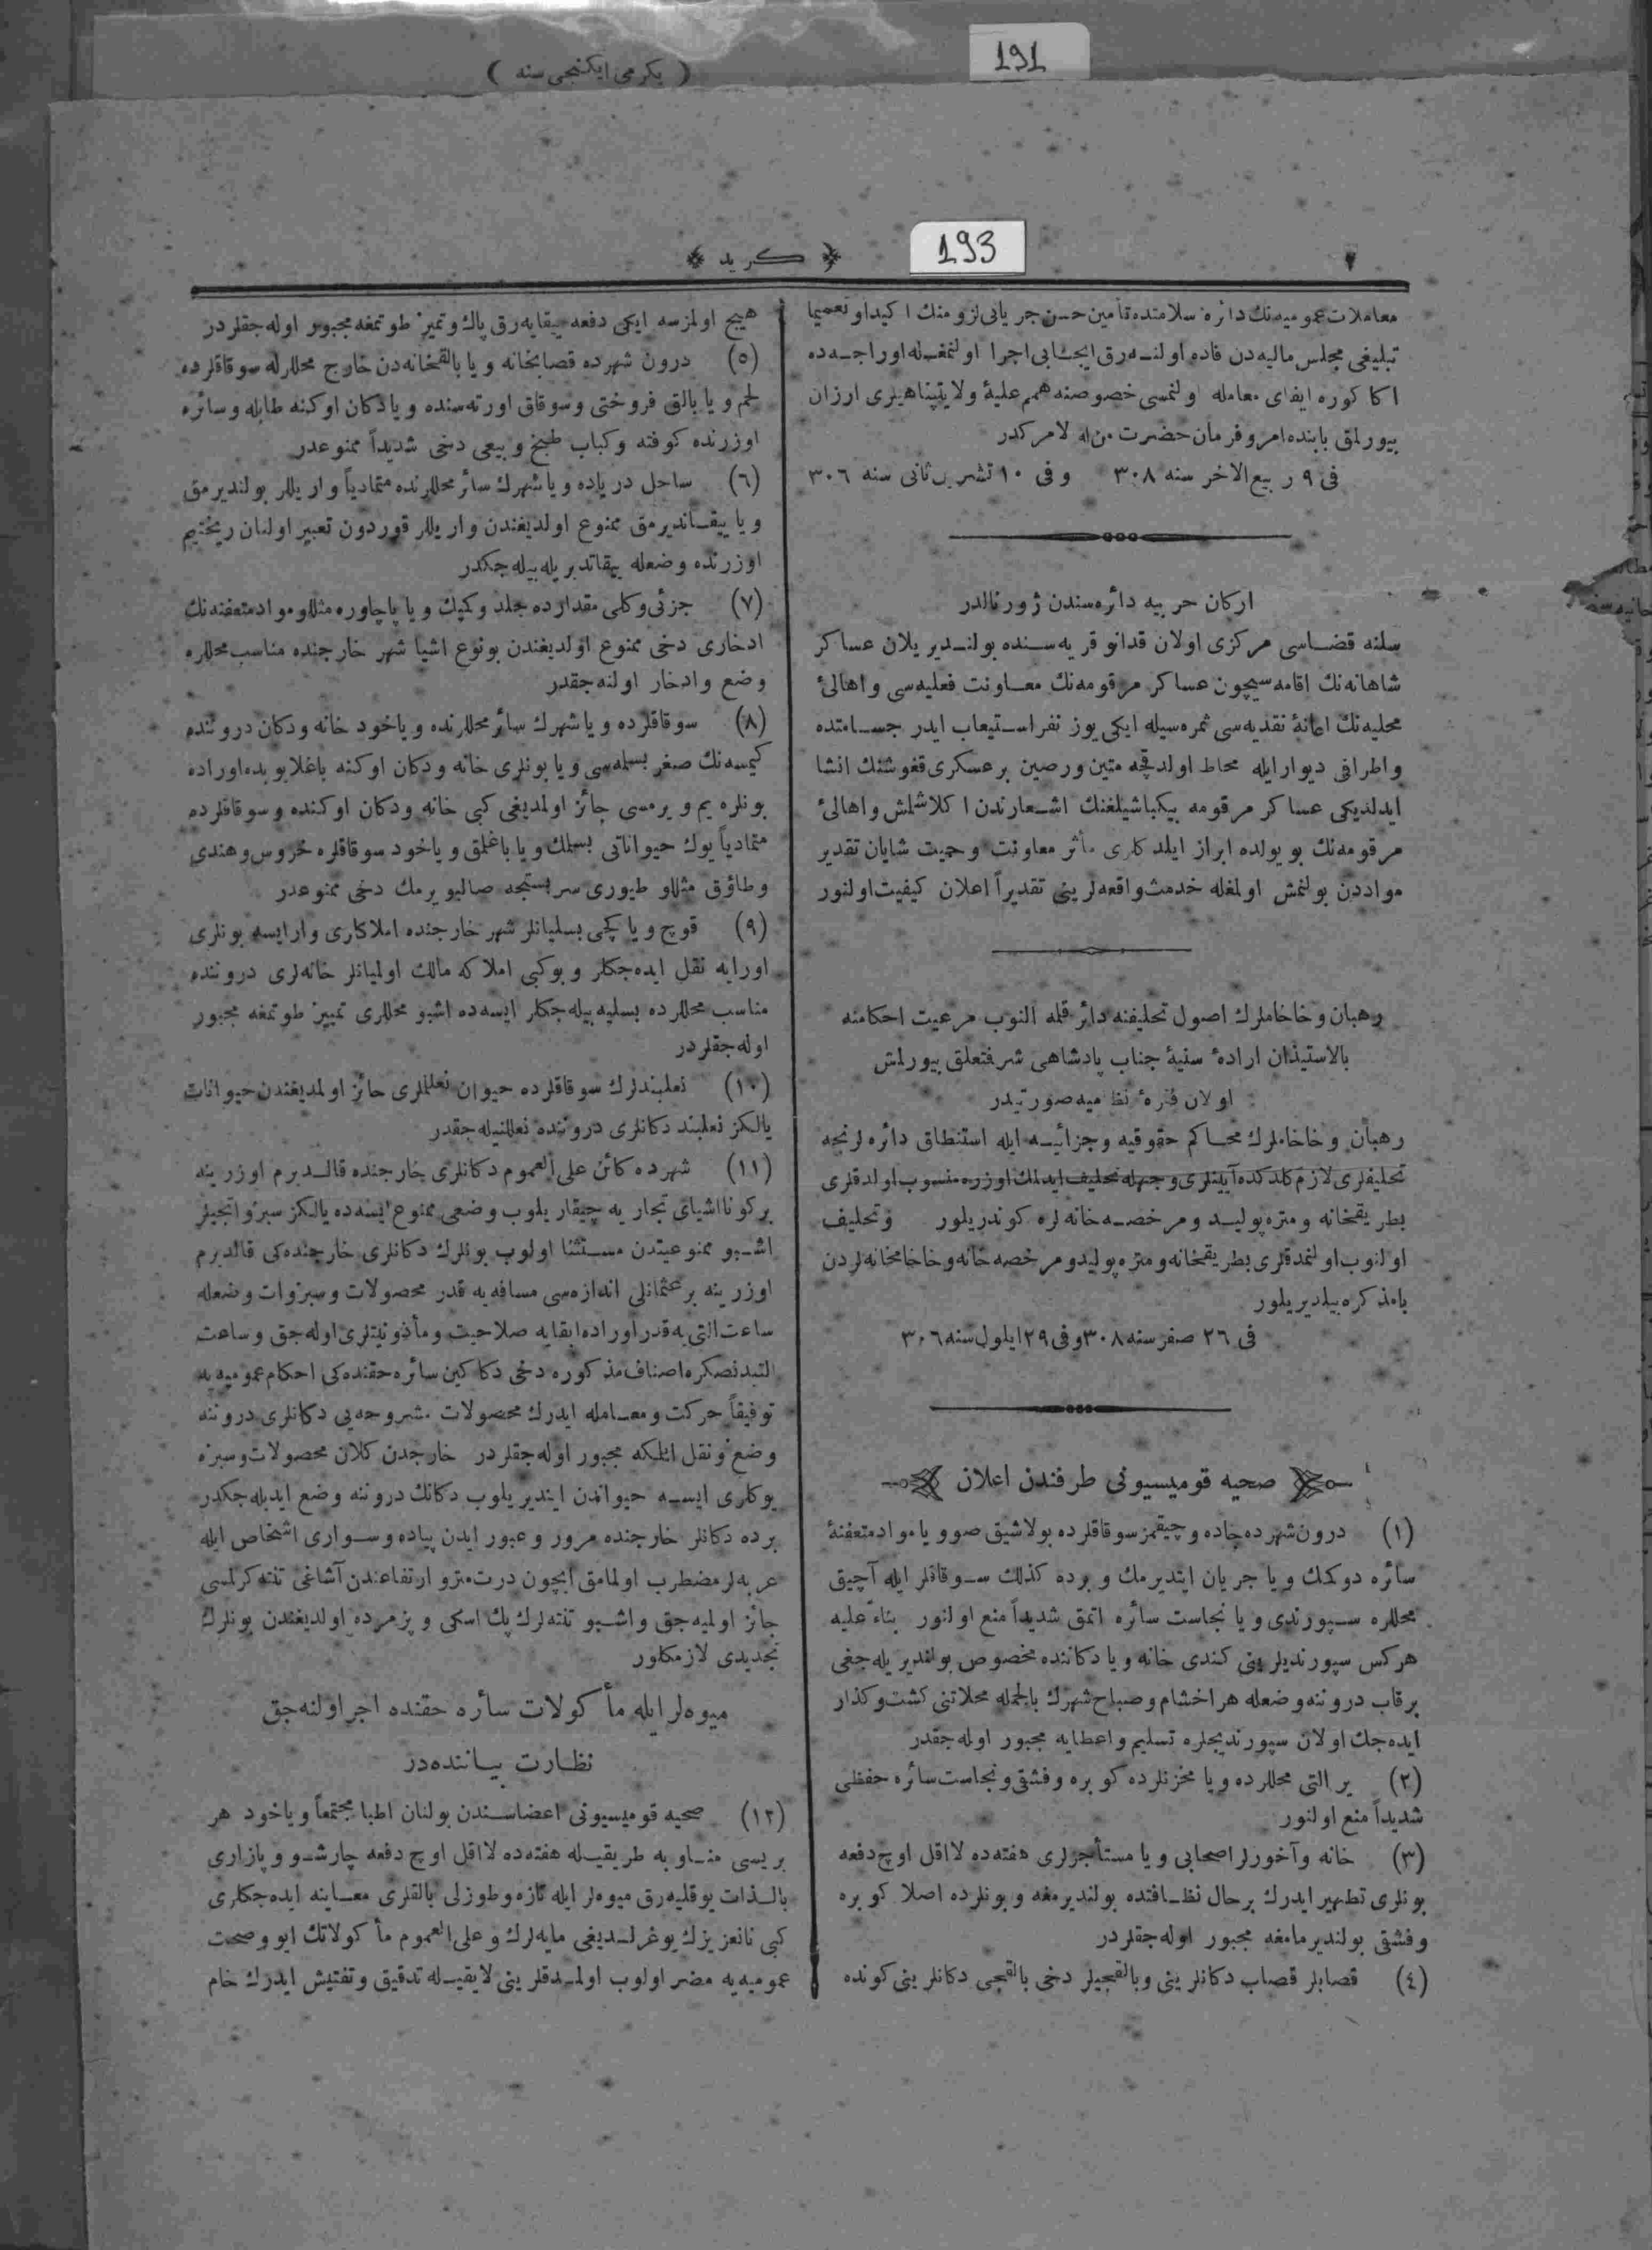 191
( يكرمی ايكنجی سنه )
193
٢
﴿ كريد ﴾
معاملات عموميه‌نك دائره سلامتده تأمين حسن جريانی لزومنك اكيداً و تعميماً
تبليغی مجلس ماليه‌دن افاده اولنه‌رق ايجابی اجرا اولنمغله اوراجه‌ده
اكا كوره ايفای معامله اولنمسی خصوصنه همم عليهٔ ولايتپناهيلری ارزان
بيورلمق بابنده امر و فرمان حضرت من له الامركدر
فی ٩ ربيع الاخر سنه ٣٠٨ و فی ١٠ تشرين ثانی سنه ٣٠٦
اركان حربيه دائره‌سندن ژورنالدر
سلنه قضاسی مركزی اولان قدانو قريه‌سنده بولنديريلان عساكر
شاهانه‌نك اقامه‌سيچون عساكر مرقومه‌نك معاونت فعليه‌سی و اهالئ
محليه‌نك اعانهٔ نقديه‌سی ثمره‌سيله ايكی يوز نفر استيعاب ايدر جسامتده
و اطرافی ديوار ايله محاط اولدقجه متين و رصين بر عسكری قغوشنك انشا
ايدلديكی عساكر مرقومه بيكباشيلغنك اشعارندن اكلاشلمش و اهالئ
مرقومه‌نك بو يولده ابراز ايلدكلری مأثر معاونت و حميت شايان تقدير
مواددن بولنمش اولمغله خدمت واقعه‌لرينی تقديراً اعلان كيفيت اولنور
رهبان و خاخاملرك اصول تحليفنه دائر قلمه النوب مرعيت احكامنه
بالاستيذان ارادهٔ سنيهٔ جناب پادشاهی شرفتعلق بيورلمش
اولان فقرهٔ نظاميه صورتيدر
رهبان و خاخاملرك محاكم حقوقيه و جزائيه ايله استنطاق دائره‌لرنجه
تحليفلری لازم كلدكده آيينلری وجهله تحليف ايدلمك اوزره منسوب اولدقلری
بطريقخانه و متره‌پوليد و مرخصه‌خانه‌لره كوندريلور و تحليف
اولنوب اولنمدقلری بطريقخانه و متره‌پوليد و مرخصه خانه و خاخامخانه‌لردن
بامذكره بيلديريلور
فی ٢٦ صفر سنه ٣٠٨ و فی ٢٩ ايلول سنه ٣٠٦
صحيه قوميسيونی طرفندن اعلان
(١) درون شهرده جاده و چيقمز سوقاقلرده بولاشيق صو و يا مواد متعفنهٔ
سائره دوكمك و يا جريان ايتديرمك و برده كذلك سوقاقلر ايله آچيق
محللره سپورندی و يا نجاست سائره اتمق شديداً منع اولنور بناءً عليه
هركس سپورنديلرينی كندی خانه و يا دكاننده مخصوص بولنديريله‌جغی
برقاب دروننه وضعله هر اخشام و صباح شهرك بالجمله محلاتنی كشت و كذار
ايده‌جك اولان سپورنديجيلره تسليم و اعطايه مجبور اوله‌جقدر
(٢) ير التی محللرده و يا مخزنلرده كوبره و فشقی و نجاست سائره حفظی
شديداً منع اولنور
(٣) خانه و آخورلر اصحابی و يا مستأجرلری هفته‌ده لااقل اوچ دفعه
بونلری تطهير ايدرك برحال نظافتده بولنديرمغه و بونلرده اصلا كوبره
و فشقی بولنديرمامغه مجبور اوله‌جقلردر
(٤) قصابلر قصاب دكانلرينی و بالقجيلر دخی بالقجی دكانلرينی كونده
هيچ اولمزسه ايكی دفعه ييقايه‌رق پاك و تميز طوتمغه مجبور اوله‌جقلردر
(٥) درون شهرده قصابخانه و يا بالقخانه‌دن خارج محللرله سوقاقلرده
لحم و يا بالق فروختی و سوقاق اورته‌سنده و يا دكان اوكنه طابله و سائره
اوزرنده كوفته و كباب طبخ و بيعی دخی شديداً ممنوعدر
(٦) ساحل درياده و يا شهرك سائر محللرنده متمادياً واريللر بولنديرمق
و يا ييقانديرمق ممنوع اولديغندن واريللر قوردون تعبير اولنان ريختيم
اوزرنده وضعله ييقاتديريله‌بيله‌جكدر
(٧) جزئی و كلی مقدارده جلد و كميك و يا پاچاوره مثللو مواد متعفنه‌نك
ادخاری دخی ممنوع اولديغندن بو نوع اشيا شهر خارجنده مناسب محللره
وضع و ادخار اولنه‌جقدر
(٨) سوقاقلرده و يا شهرك سائر محللرنده و ياخود خانه و دكان دروننده
كيمسه‌نك صغر بسلمه‌سی و يا بونلری خانه و دكان اوكنه باغلايوبده اوراده
بونلره يم ويرمسی جائز اولمديغی كبی خانه و دكان اوكنده و سوقاقلرده
متمادياً يوك حيواناتی بسلمك و يا باغلمق و ياخود سوقاقلره خروس و هندی
و طاؤق مثللو طيوری سربستجه صاليويرمك دخی ممنوعدر
(٩) قوچ و يا كچی بسليانلر شهر خارجنده املاكلری وارايسه بونلری
اورايه نقل ايده‌جكلر و بوكبی املاكه مالك اولميانلر خانه‌لری دروننده
مناسب محللرده بسليه‌بيله‌جكلر ايسه‌ده اشبو محللری تميز طوتمغه مجبور
اوله‌جقلردر
(١٠) نعلبندلرك سوقاقلرده حيوان نعللملری جائز اولمديغندن حيوانات
يالكز نعلبند دكانلری دروننده نعللنيله‌جقدر
(١١) شهرده كائن علی العموم دكانلری خارجنده قالديرم اوزرينه
بركونا اشيای تجاريه چيقاريلوب وضعی ممنوع ايسه‌ده يالكز سبزواتجيلر
اشبو ممنوعيتدن مستثنا اولوب بونلرك دكانلری خارجنده‌كی قالديرم
اوزرينه برعثمانلی اندازه‌سی مسافه‌يه قدر محصولات و سبزوات وضعله
ساعت التی‌يه قدر اوراده ابقايه صلاحيت و مأذونيتلری اوله‌جق و ساعت
التيدنصكره اصناف مذكوره دخی دكاكين سائره حقنده‌كی احكام عموميه‌يه
توفيقاً حركت و معامله ايدرك محصولات مشروحه‌يی دكانلری دروننه
وضع و نقل ايلمكه مجبور اوله‌جقلردر خارجدن كلان محصولات و سبزه
يوكلری ايسه حيواندن اينديريلوب دكانك دروننه وضع ايديله‌جكدر
برده دكانلر خارجنده مرور و عبور ايدن پياده و سواری اشخاص ايله
عربه‌لر مضطرب اولمامق ايچون درت مترو ارتفاعندن آشاغی تنته كرلمسی
جائز اولميه‌جق و اشبو تنته‌لرك پك اسكی و پژمرده اولديغندن بونلرك
تجديدی لازمكلور
ميوه‌لر ايله مأكولات سائره حقنده اجرا اولنه‌جق
نظارت بياننده‌در
(١٢) صحيه قوميسيونی اعضاسندن بولنان اطبا مجتمعاً و ياخود هر
بريسی مناوبه طريقيله هفته‌ده لااقل اوچ دفعه چارشو و پازاری
بالذات يوقليه‌رق ميوه‌لر ايله تازه و طوزلی بالقلری معاينه ايده‌جكلری
كبی نانعزيزك يوغرلديغی مايه‌لرك و علی العموم مأكولاتك ايو و صحت
عموميه‌يه مضر اولوب اولمدقلرينی لايقيله تدقيق و تفتيش ايدرك خام